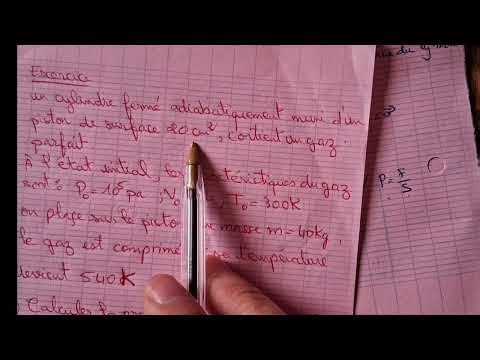 Exercice
un cylindre fermé adiabatiquement muni d'un
piston de surface 20 cm², contient un gaz
parfait
À l'état initial, les caractéristiques du gaz
sont : P₀ = 10⁵ pa, V₀ , T₀ = 300K
on place sur le piston une masse m = 40kg,
le gaz est comprimé température
devient 540K
Calculer
P = F/S